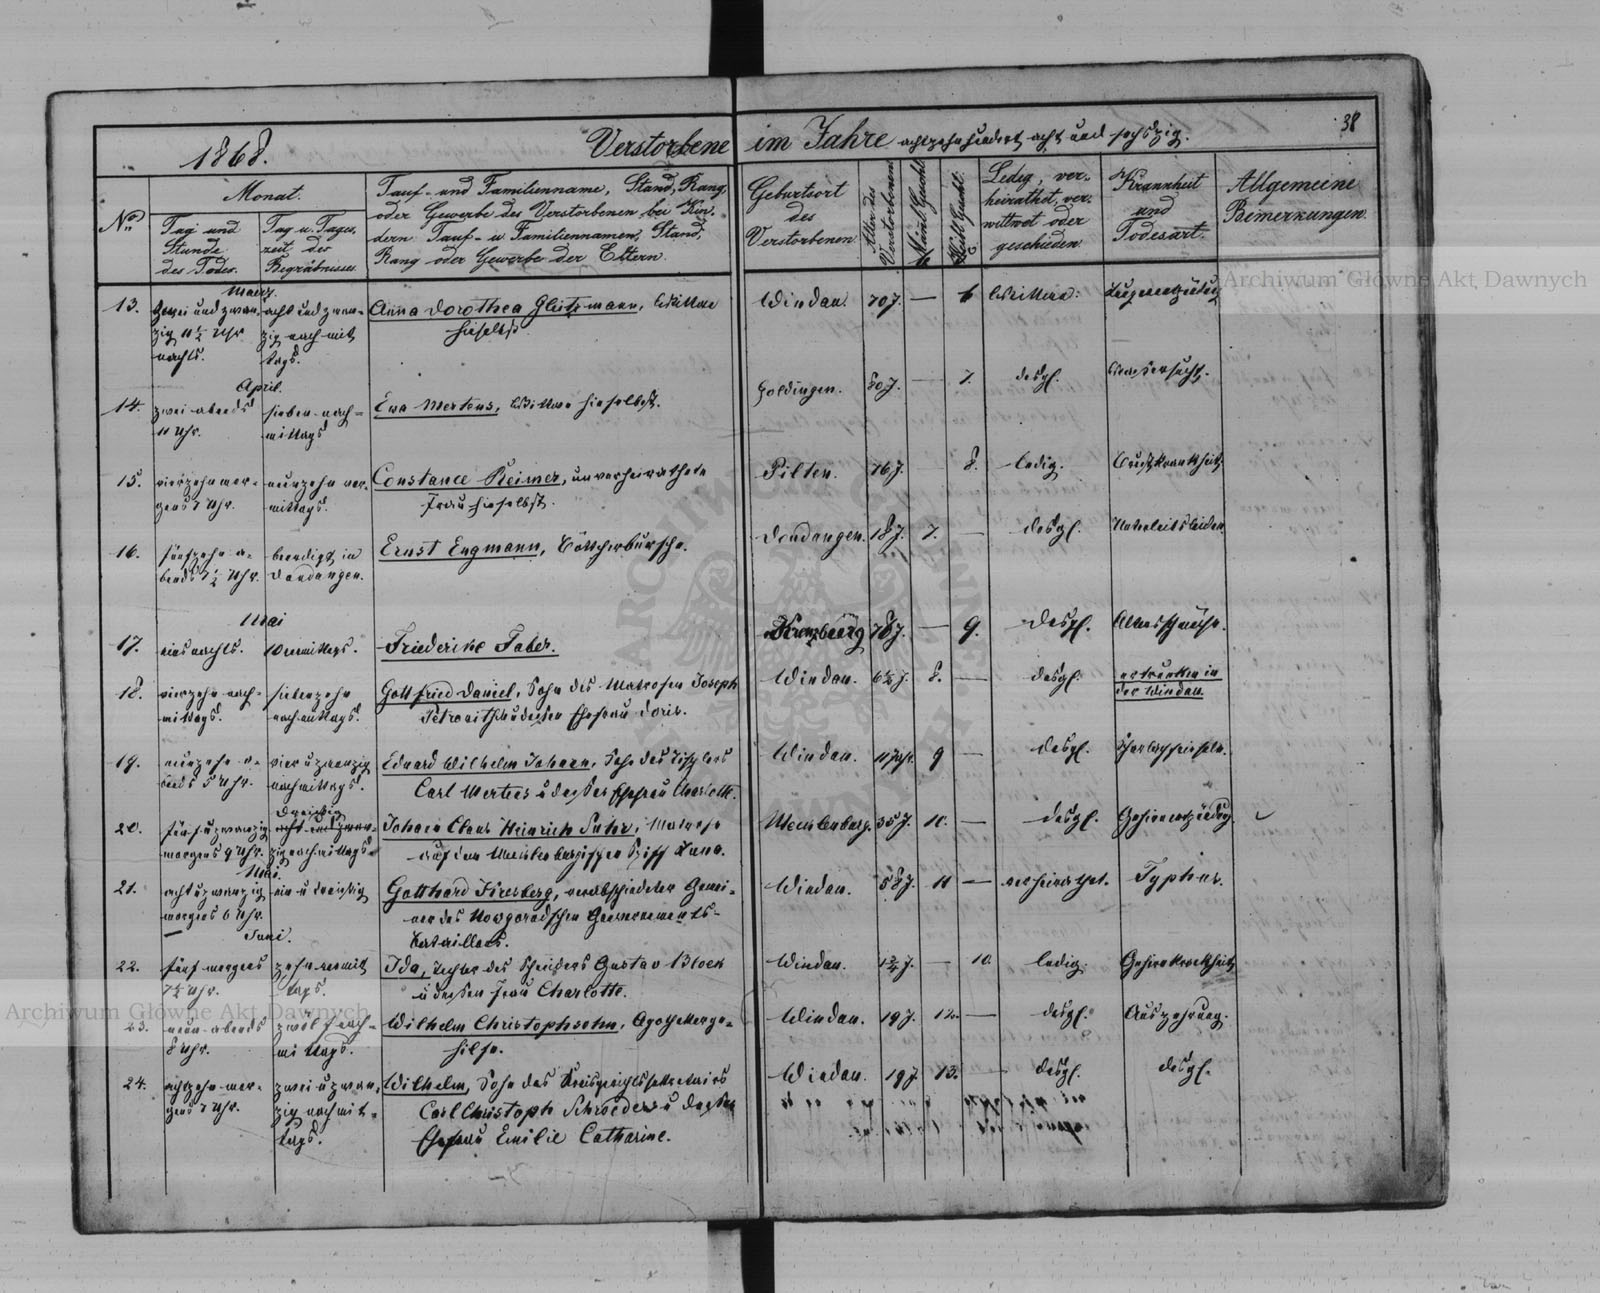 38
1868.
Verstorbene im Jahre achtzehnhundert acht und sechszig.
No.
Monat.
Tag und Stunde des Todes.
Tag u. Tageszeit des Begräbnisses.
Tauf- und Familienname, Stand, Rang
oder Gewerbe des Verstorbenen bei Kin-
dern Tauf- u Familiennamen, Stand,
Rang oder Gewerbe der Eltern.
Geburtsort
des
Verstorbenen
Alter des Verstorbenen
Männl. Geschl.
Weibl. Geschl.
Ledig, ver-
heirathet, ver-
wittwet oder
geschieden
Krankheit
und
Todesart.
Allgemeine
Bemerkungen.
Maerz.
13.
zwei und zwan-
zig 11½ Uhr
nachts.
acht und zwan-
zig nachmit
tags.
Anna Dorothea, Wittwe
hieselbst.
Windau.
70 J.
—
6
Wittwe.
April.
14.
zwei abends
11 Uhr.
sieben nach-
mittags
Ewa Mertens, Wittwe hieselbst.
Goldingen.
80 J.
—
7.
desgl.
Wassersucht.
15.
vierzehn mor-
gens 7 Uhr.
neunzehn vor-
mittags.
Constance Reimer, unverheirathete
Frau hieselbst.
Pilten.
76 J.
8.
ledig.
Brustkrankheit.
16.
fünfzehn a-
bends 7½ Uhr.
beerdigt in
Dondangen.
Ernst Engmann, Böttcherbursche.
Dondangen.
18 J.
7.
—
desgl.
Unterleibsleiden.
Mai
17.
eins nachts.
10 vormittags.
Friederike Faber.
Kreuzburg
78 J.
—
9.
desgl.
Altersschwäche.
18.
vierzehn nach-
mittags.
siebenzehn
nachmittags.
Gottfried Daniel, Sohn des Matrosen Joseph
u dessen Ehefrau Doris.
Windau.
6½ J.
8.
—
desgl.
ertrunken in
der Windau.
19.
neunzehn a-
bends 5 Uhr.
vier u zwanzig
nachmittags.
Eduard Wilhelm Johann, Sohn des Tischlers
Carl Mertens u dessen Ehefrau Charlotte.
Windau.
9
—
desgl.
20.
fünf u zwanzig
morgens 9 Uhr.
dreissig
acht und zwan-
zig nachmittags.
Johann Claus Heinrich Suhr, Matrose
auf dem Mecklenburgischen Schiff
Mecklenburg.
35 J.
10.
—
desgl.
Gehirnentzündung.
Mai.
21.
acht u zwanzig
morgens 6 Uhr.
ein u dreissig
Gotthard Hirsberg, verabschiedeter Gemei-
ner des Nowgorodschen Gouvernements-
Bataillons.
Windau.
58 J.
11
—
verheirathet.
Typhus.
Juni.
22.
fünf morgens
7½ Uhr.
zehn vormit
tags.
Ida, Tochter des Schneiders Gustav Block
u dessen Frau Charlotte.
Windau.
1¾ J.
—
10.
ledig.
Gehirnkrankheit
23.
neun abends
8 Uhr.
zwölf nach-
mittags.
Wilhelm Christophsohn, Apothekerge-
hilfe.
Windau.
19 J.
12.
—
desgl.
Auszehrung.
24.
achtzehn mor-
gens 7 Uhr.
zwei u zwan-
zig nachmit-
tags.
Wilhelm, Sohn des Kreisgerichtssekretairs
Carl Christoph Schroeders u dessen
Ehefrau Emilie Catharine.
Windau.
19 J.
13.
—
desgl.
desgl.
Archiwum Główne Akt Dawnych
Archiwum Główne Akt Dawnych
ARCHIWUM GŁÓWNE AKT DAWNYCH